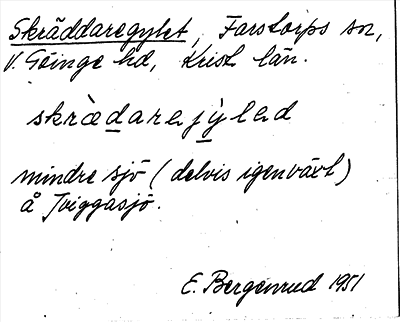 Skräddaregylet, Farstorps sn,
V. Göinge hd, Krist län.
skræ̀darejy̍led
mindre sjö (delvis igenväxt)
å Tviggasjö.
E. Bergenrud 1951